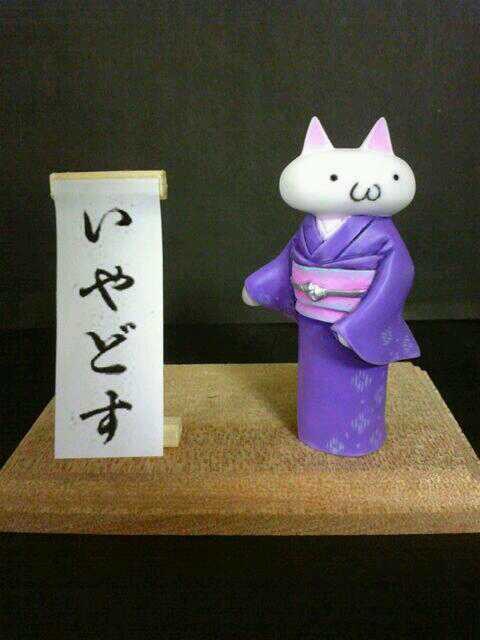 いやどす